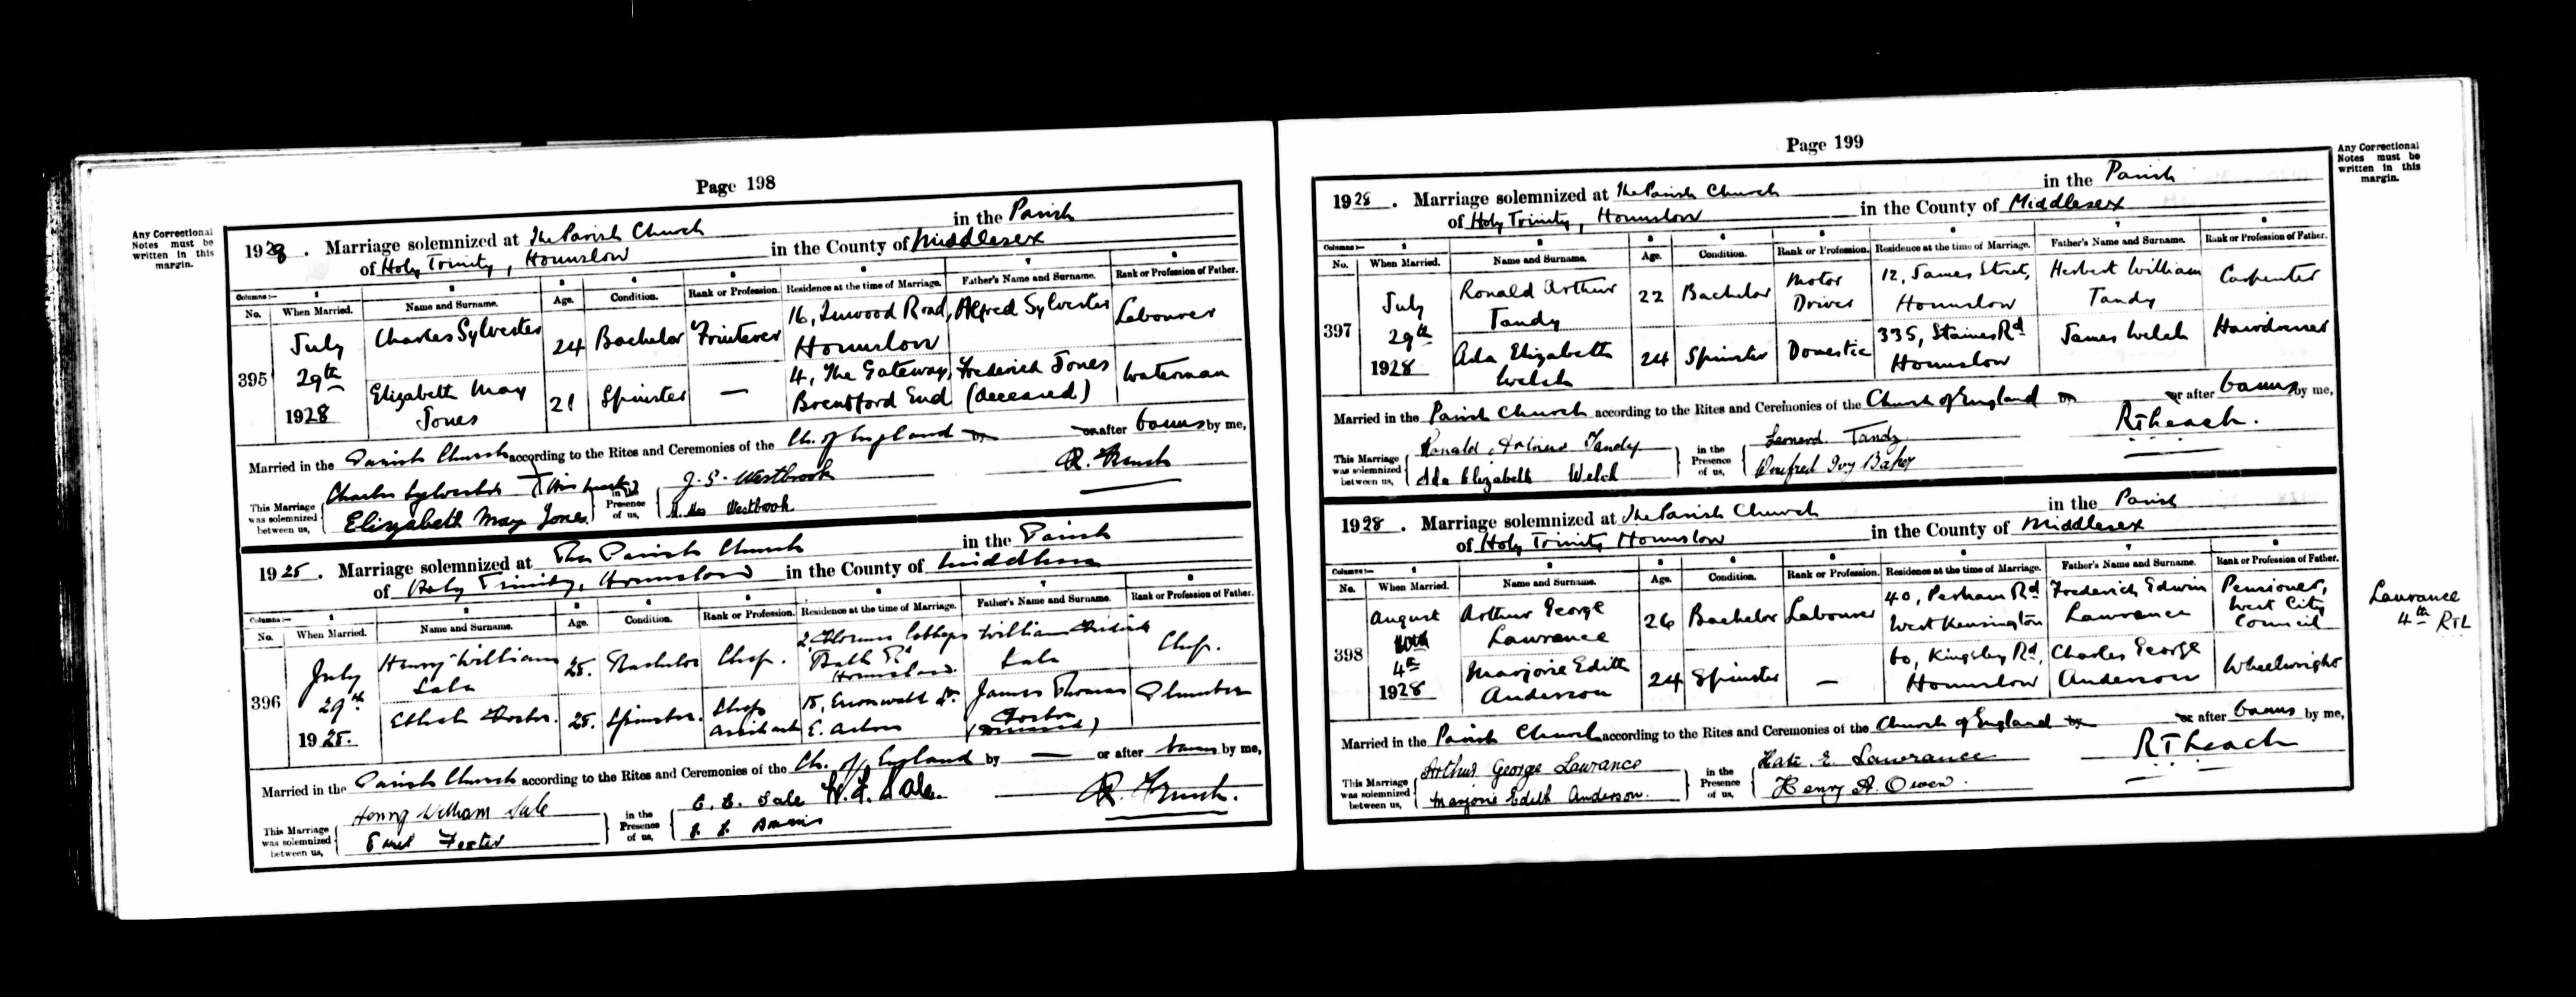 Page 198
Any Correctional
Notes must be
written in this
margin.
1928. Marriage solemnized at The Parish Church in the Parish
of Holy Trinity, Hounslow in the County of Middlesex
Columns:— 1 2 3 4 5 6 7 8
No. When Married. Name and Surname. Age. Condition. Rank or Profession. Residence at the time of Marriage. Father's Name and Surname. Rank or Profession of Father.
395 July 29th 1928 Charles Sylvester 24 Bachelor Fruiterer 16, Inwood Road, Hounslow Alfred Sylvester Labourer
Elizabeth May Jones 21 Spinster — 4, The Gateway, Brentford End Frederick Jones (deceased) Waterman
Married in the Parish Church according to the Rites and Ceremonies of the Ch. of England by or after banns by me,
This Marriage was solemnized between us, Charles Sylvester X (his mark) Elizabeth May Jones in the Presence of us, J. S. Westbrook Westbrook R. French
1928. Marriage solemnized at The Parish Church in the Parish
of Holy Trinity, Hounslow in the County of Middlesex
Columns:— 1 2 3 4 5 6 7 8
No. When Married. Name and Surname. Age. Condition. Rank or Profession. Residence at the time of Marriage. Father's Name and Surname. Rank or Profession of Father.
396 July 29th 1928. Henry William Sale 25. Bachelor Chef. 2, Cottages Bath Rd Hounslow William Sale Chef.
Ethel Foster. 25. Spinster. Shop assistant 15, St. E. Acton James Thomas Foster (deceased) Plumber
Married in the Parish Church according to the Rites and Ceremonies of the Ch. of England by — or after banns by me,
This Marriage was solemnized between us, Henry William Sale Ethel Foster in the Presence of us, Sale Sale. R. French.
Page 199
Any Correctional
Notes must be
written in this
margin.
1928. Marriage solemnized at The Parish Church in the Parish
of Holy Trinity, Hounslow in the County of Middlesex
Columns:— 1 2 3 4 5 6 7 8
No. When Married. Name and Surname. Age. Condition. Rank or Profession. Residence at the time of Marriage. Father's Name and Surname. Rank or Profession of Father.
397 July 29th 1928 Ronald Arthur Tandy 22 Bachelor Motor Driver 12, James Street, Hounslow Herbert William Tandy Carpenter
Ada Elizabeth Welch 24 Spinster Domestic 335, Staines Rd Hounslow James Welch Hairdresser
Married in the Parish Church according to the Rites and Ceremonies of the Church of England by or after banns by me,
This Marriage was solemnized between us, Ronald Arthur Tandy Ada Elizabeth Welch in the Presence of us, Leonard Tandy Winifred Ivy Baker R T Leach.
1928. Marriage solemnized at The Parish Church in the Parish
of Holy Trinity Hounslow in the County of Middlesex
Columns:— 1 2 3 4 5 6 7 8
No. When Married. Name and Surname. Age. Condition. Rank or Profession. Residence at the time of Marriage. Father's Name and Surname. Rank or Profession of Father.
398 August 4th 1928 Arthur George Lawrance 26 Bachelor Labourer 40, Perham Rd West Kensington Frederick Edwin Lawrance Pensioner, West City Council
Marjorie Edith Anderson 24 Spinster — 60, Kingsley Rd, Hounslow Charles George Anderson Wheelwright
Lawrance
4th RTL
Married in the Parish Church according to the Rites and Ceremonies of the Church of England by or after banns by me,
This Marriage was solemnized between us, Arthur George Lawrance Marjorie Edith Anderson. in the Presence of us, Kate E. Lawrance Henry A. Owen. R T Leach